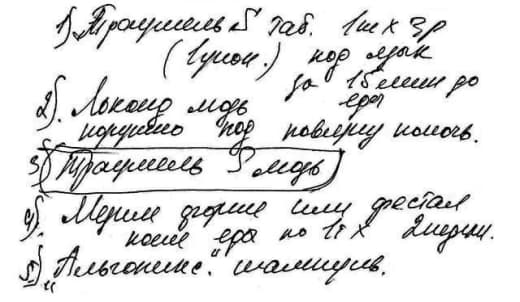 1) Траумель S таб. 1т х 3р
(1упак.) под язык
за 15 мин до
еды
2). Локоид мазь
наружно под повязку на ночь.
3) Траумель S мазь
4). Мезим форте или фестал
после еды по 1т х 2 недели.
5) "Альгопикс" шампунь.